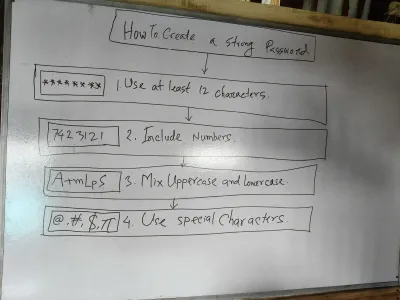 How To Create a strong Password
******** 1. Use at least 12 characters.
7423121 2. Include Numbers.
A+mLpS 3. Mix Uppercase and lowercase.
@.#.$.π 4. Use special Characters